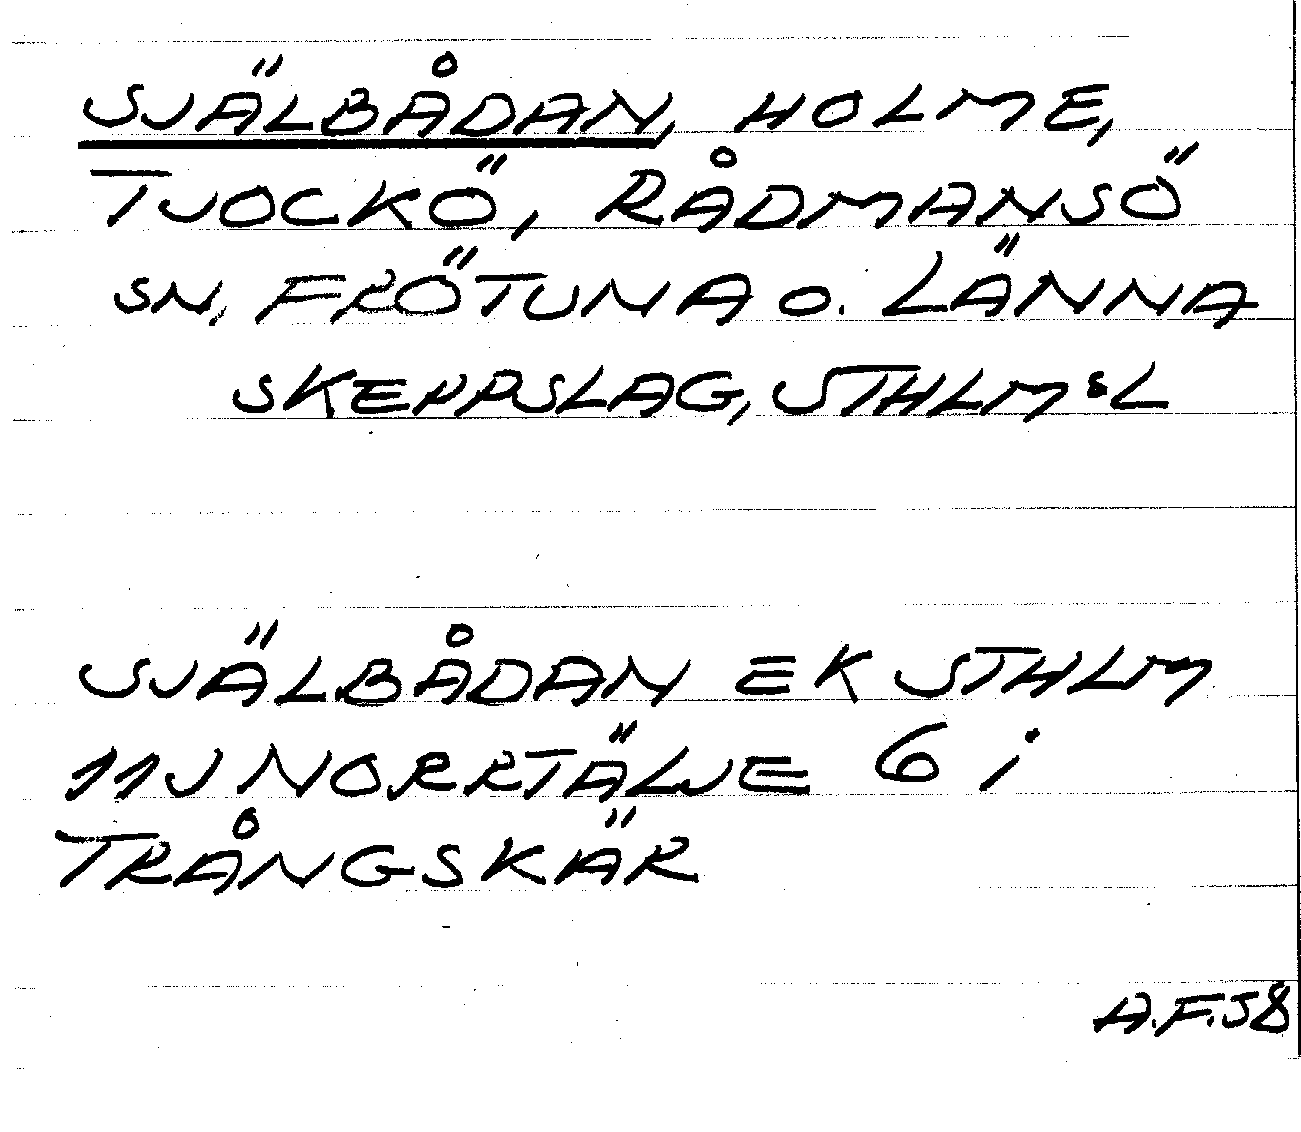 SJÄLBÅDAN, HOLME,
TJOCKÖ, RÅDMANSÖ
SN, FRÖTUNA O. LÄNNA
SKEPPSLAG, STHLMSL
SJÄLBÅDAN EK STHLM
11J NORRTÄLJE 6 i
TRÅNGSKÄR
A.F.58